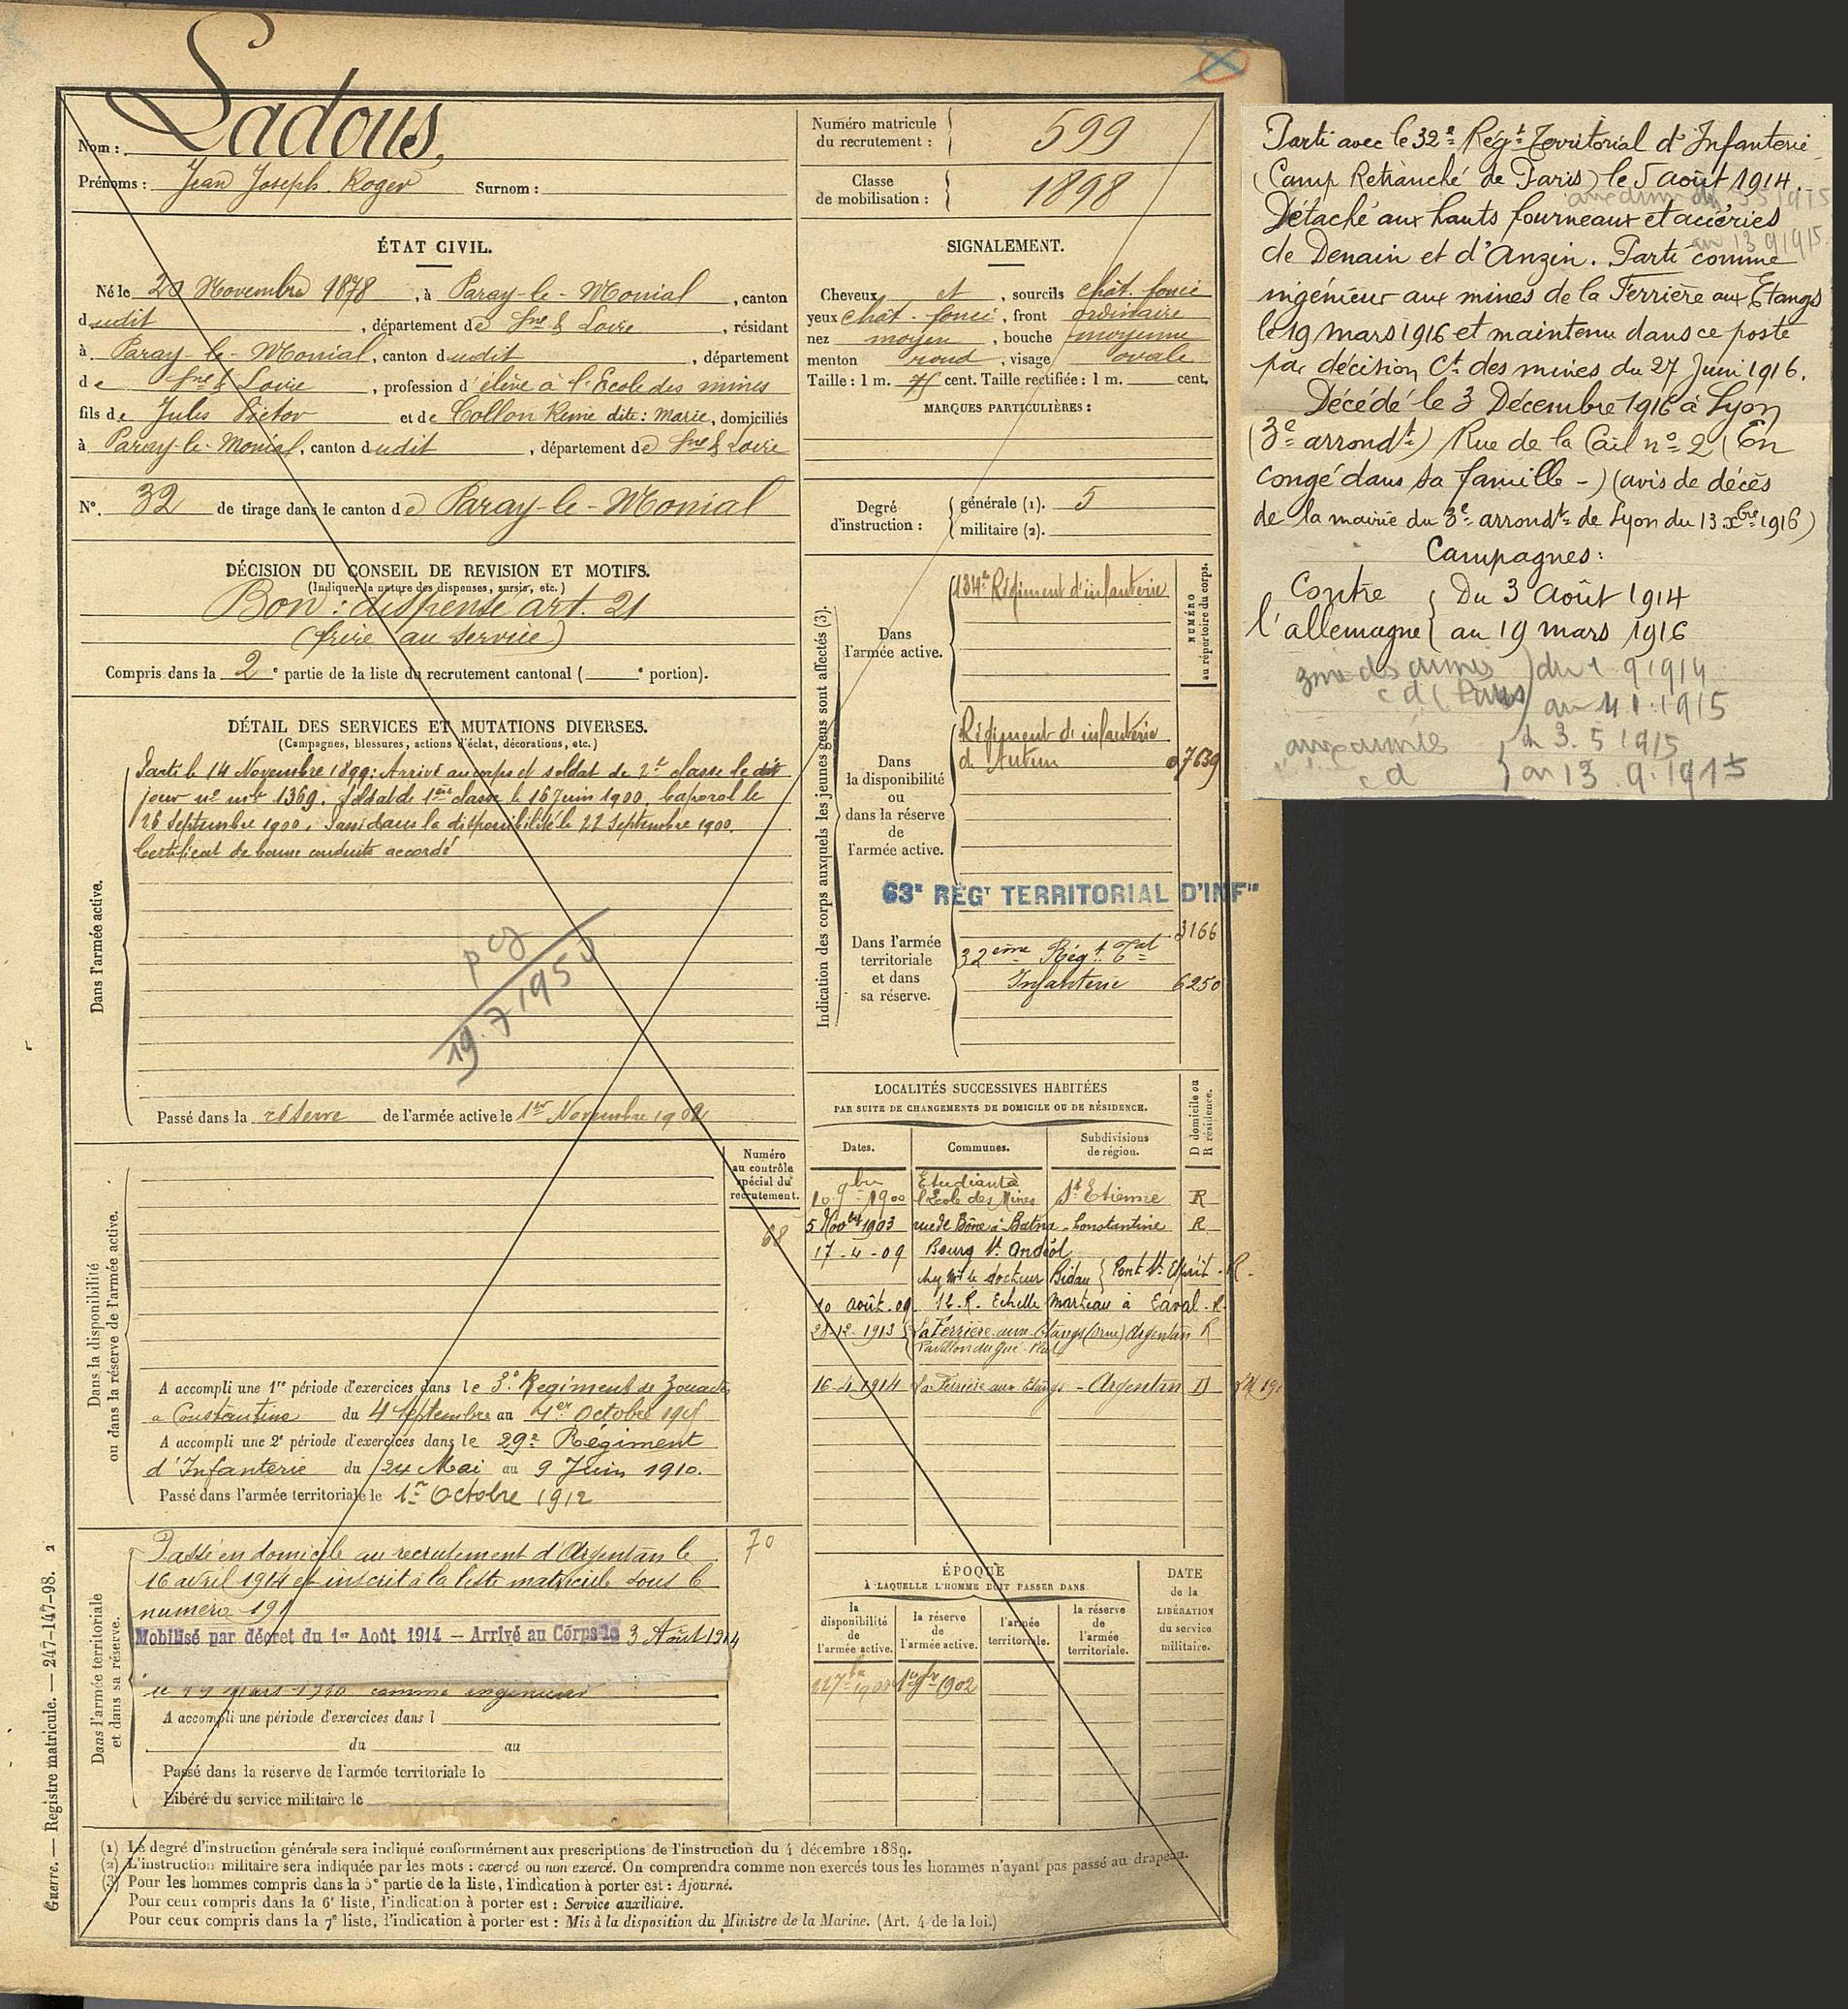 Nom : Ladous,
Prénoms : Jean Joseph Roger Surnom :
ÉTAT CIVIL.
Né le 20 Novembre 1878, à Paray-le-Monial, canton
dudit, département de Sne & Loire, résidant
à Paray-le-Monial, canton dudit, département
de Sne & Loire, profession d'élève à l'Ecole des mines
fils de Jules Victor et de Collon Remie dite : Marie, domiciliés
à Paray-le-Monial, canton dudit, département de Sne & Loire
N°. 32 de tirage dans le canton de Paray-le-Monial
DÉCISION DU CONSEIL DE REVISION ET MOTIFS.
(Indiquer la nature des dispenses, sursis, etc.)
Bon : dispensé art. 21
(frère au service)
Compris dans la 2e partie de la liste du recrutement cantonal ( e portion).
DÉTAIL DES SERVICES ET MUTATIONS DIVERSES.
(Campagnes, blessures, actions d'éclat, décorations, etc.)
Dans l'armée active.
Parti le 14 Novembre 1899 : Arrivé au corps et soldat de 2e classe le dit
jour no mle 1369. Soldat de 1ère classe le 16 Juin 1900. Caporal le
18 Septembre 1900. Passé dans la disponibilité le 22 Septembre 1900.
Certificat de bonne conduite accordé
19.7.195
Passé dans la réserve de l'armée active le 1er Novembre 1902
Dans la disponibilité
ou dans la réserve de l'armée active.
Numéro
au contrôle
spécial du
recrutement.
68
A accompli une 1re période d'exercices dans le 3e Régiment de Zouaves
à Constantine du 4 Septembre au 1er Octobre 190
A accompli une 2e période d'exercices dans le 29e Régiment
d'Infanterie du 24 Mai au 9 Juin 1910.
Passé dans l'armée territoriale le 1er Octobre 1912
Dans l'armée territoriale
et dans sa réserve.
70
Passé en domicile au recrutement d'Argentan le
16 avril 1914 et inscrit à la liste matricule sous le
numéro 191
Mobilisé par décret du 1er Août 1914 — Arrivé au Corps le 3 Août 1914
le 19 mars comme ingénieur
A accompli une période d'exercices dans l
du au
Passé dans la réserve de l'armée territoriale le
Libéré du service militaire le
Numéro matricule
du recrutement : 599
Classe
de mobilisation : 1898
SIGNALEMENT.
Cheveux et, sourcils chât. foncé
yeux chât. foncé, front ordinaire
nez moyen, bouche moyenne
menton rond, visage ovale
Taille : 1 m. 75 cent. Taille rectifiée : 1 m. cent.
MARQUES PARTICULIÈRES :
Degré
d'instruction :
générale (1). 5
militaire (2).
Indication des corps auxquels les jeunes gens sont affectés (3).
NUMÉRO
au répertoire du corps.
Dans
l'armée active.
134e Régiment d'infanterie
Dans
la disponibilité
ou
dans la réserve
de
l'armée active.
Régiment d'infanterie
d'Autun 07639
63e RÉGT TERRITORIAL D'INFie
3166
Dans l'armée
territoriale
et dans
sa réserve.
32ème Régt Tal
Infanterie 6250
LOCALITÉS SUCCESSIVES HABITÉES
PAR SUITE DE CHANGEMENTS DE DOMICILE OU DE RÉSIDENCE.
Dates. Communes. Subdivisions
de région. D domicile ou
R résidence.
10 9bre 1900 Etudiant à
l'Ecole des Mines St Etienne R
5 Novbre 1903 rue de Bône à Batna - Constantine R
17-4-09 Bourg St Andéol
chez Mr le docteur Bidau Pont St Esprit - R.
10 août 09 12. R. Echelle Marteau à Laval - R.
28-12-1913 La Ferrière aux Etangs (Orne) Argentan R
Pavillon du Gué
16-4-1914 La Ferrière aux Etangs - Argentan D
ÉPOQUE
À LAQUELLE L'HOMME DOIT PASSER DANS
DATE
de la
LIBÉRATION
du service
militaire.
la
disponibilité
de
l'armée active.
la réserve
de
l'armée active.
l'armée
territoriale.
la réserve
de
l'armée
territoriale.
1er 9bre 1902
(1) Le degré d'instruction générale sera indiqué conformément aux prescriptions de l'instruction du 4 décembre 1889.
(2) L'instruction militaire sera indiquée par les mots : exercé ou non exercé. On comprendra comme non exercés tous les hommes n'ayant pas passé au drapeau.
(3) Pour les hommes compris dans la 5e partie de la liste, l'indication à porter est : Ajourné.
Pour ceux compris dans la 6e liste, l'indication à porter est : Service auxiliaire.
Pour ceux compris dans la 7e liste, l'indication à porter est : Mis à la disposition du Ministre de la Marine. (Art. 4 de la loi.)
Guerre. — Registre matricule. — 247-147-98. 2
Parti avec le 32e Régt Territorial d'Infanterie
(Camp Retranché de Paris) le 5 août 1914.
aux armées du 3 5 1915
Détaché aux hauts fourneaux et aciéries
au 13 9 1915
de Denain et d'Anzin. Parti comme
ingénieur aux mines de la Ferrière aux Etangs
le 19 mars 1916 et maintenu dans ce poste
par décision Ct des mines du 27 Juin 1916.
Décédé le 3 Décembre 1916 à Lyon
(3e arrondt) Rue de la Cail no 2 (En
congé dans sa famille -) (avis de décès
de la mairie du 3e arrondt de Lyon du 13 Xbre 1916)
Campagnes :
Contre
l'allemagne
Du 3 Août 1914
au 19 mars 1916
zone des armées
cd (Paris)
du 1 9 1914
au 4 1 1915
aux armées
cd
d 3. 5 1915
au 13 9. 1915